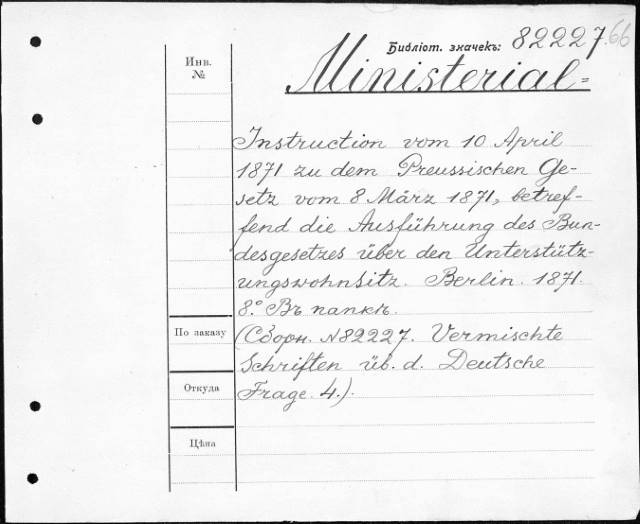 Библіот. значекъ: 82227.66
Инв.
№
Ministerial-
Instruction vom 10 April
1871 zu dem Preussischen Ge-
setz vom 8 März 1871, betref-
fend die Ausführung des Bun-
desgesetzes über den Unterstütz-
ungswohnsitz. Berlin. 1871.
8.° Въ папкѣ.
По заказу
(Сборн. №82227. Vermischte
Schriften üb. d. Deutsche
Откуда
Frage. 4.).
Цѣна